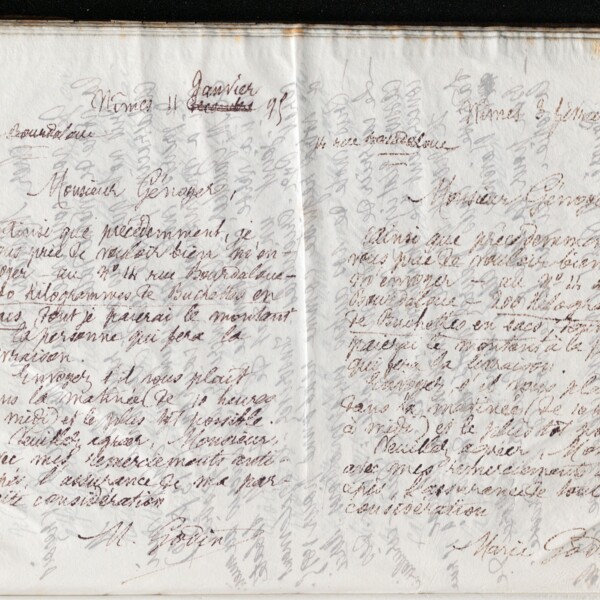 Nîmes 11 Janvier 95
Bourdaloue
Monsieur Génoyer,
Ainsi que précédemment, je
vous prie de vouloir bien m'en-
oyer - au N° 14 rue Bourdaloue -
Kilogrammes de Buchettes en
sacs, dont je paierai le montant
la personne qui fera la
vraison.
Envoyez s'il vous plaît
dans la matinée (de 10 heures
midi) et le plus tôt possible.
Veuillez agréer, Monsieur,
avec mes remerciements anti-
l'assurance de ma par-
considération
M. Godin
Nîmes 3 février
14 rue Bourdaloue
Monsieur Génoy
Ainsi que précédemmen
vous prie de vouloir bien
m'envoyer - au N° 14
Bourdaloue - 100 Kilogra
de Buchettes en sacs,
paierai le montant à la p
qui fera la livraison.
Envoyez s'il vous pla
dans la matinée (de 10 h
à midi) et le plus tôt po
Veuillez agréer, Mon
avec mes remerciements
l'assurance de tout
considération
Marie Godi